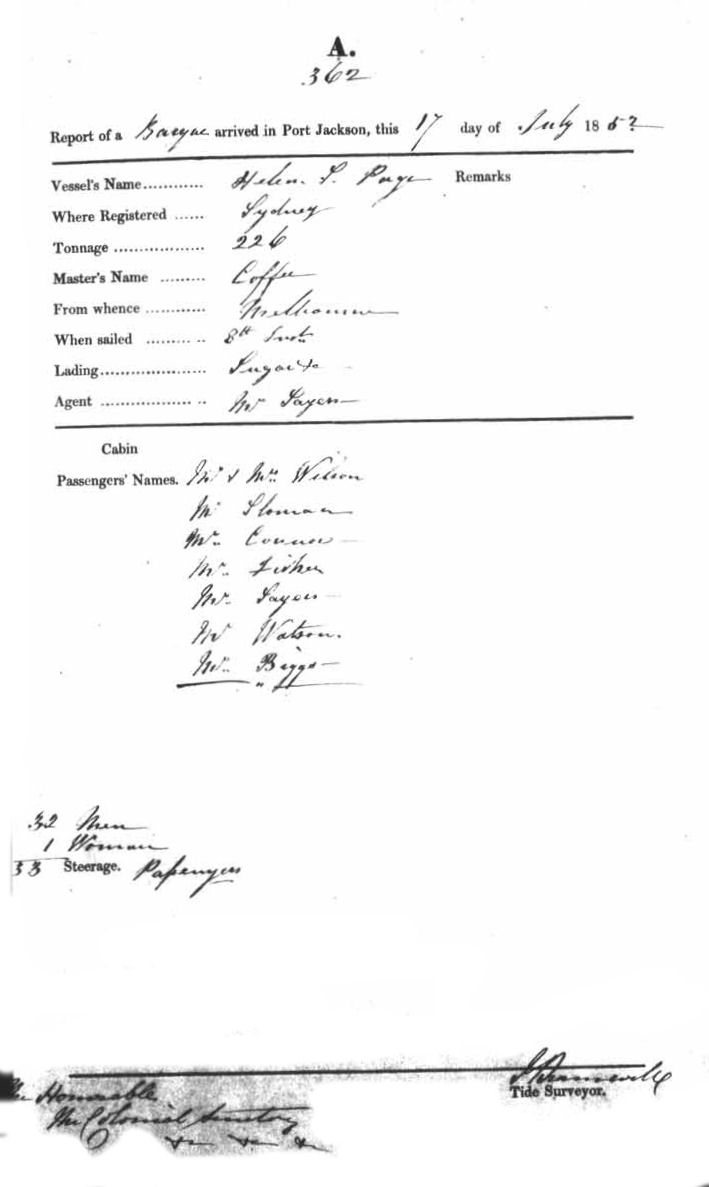 A.
362
Report of a Barque arrived in Port Jackson, this 17 day of July 1852
Vessel's Name............ Helen S. Page Remarks
Where Registered ...... Sydney
Tonnage .................. 226
Master's Name ......... Coffee
From whence ............ Melbourne
When sailed ......... .. 8th Inst
Lading..................... Sugar &c
Agent .................. .. Mr Sayers
Cabin
Passengers' Names. Mr & Mrs Wilson
Mr Sloman
Mr. Connor
Mr. Fisher
Mr. Sayers
Mr Watson.
Mr. Biggs
32 Men
1 Woman
33 Steerage. Passengers
Tide Surveyor.
The Honorable
The Colonial Secretary
&c &c &c